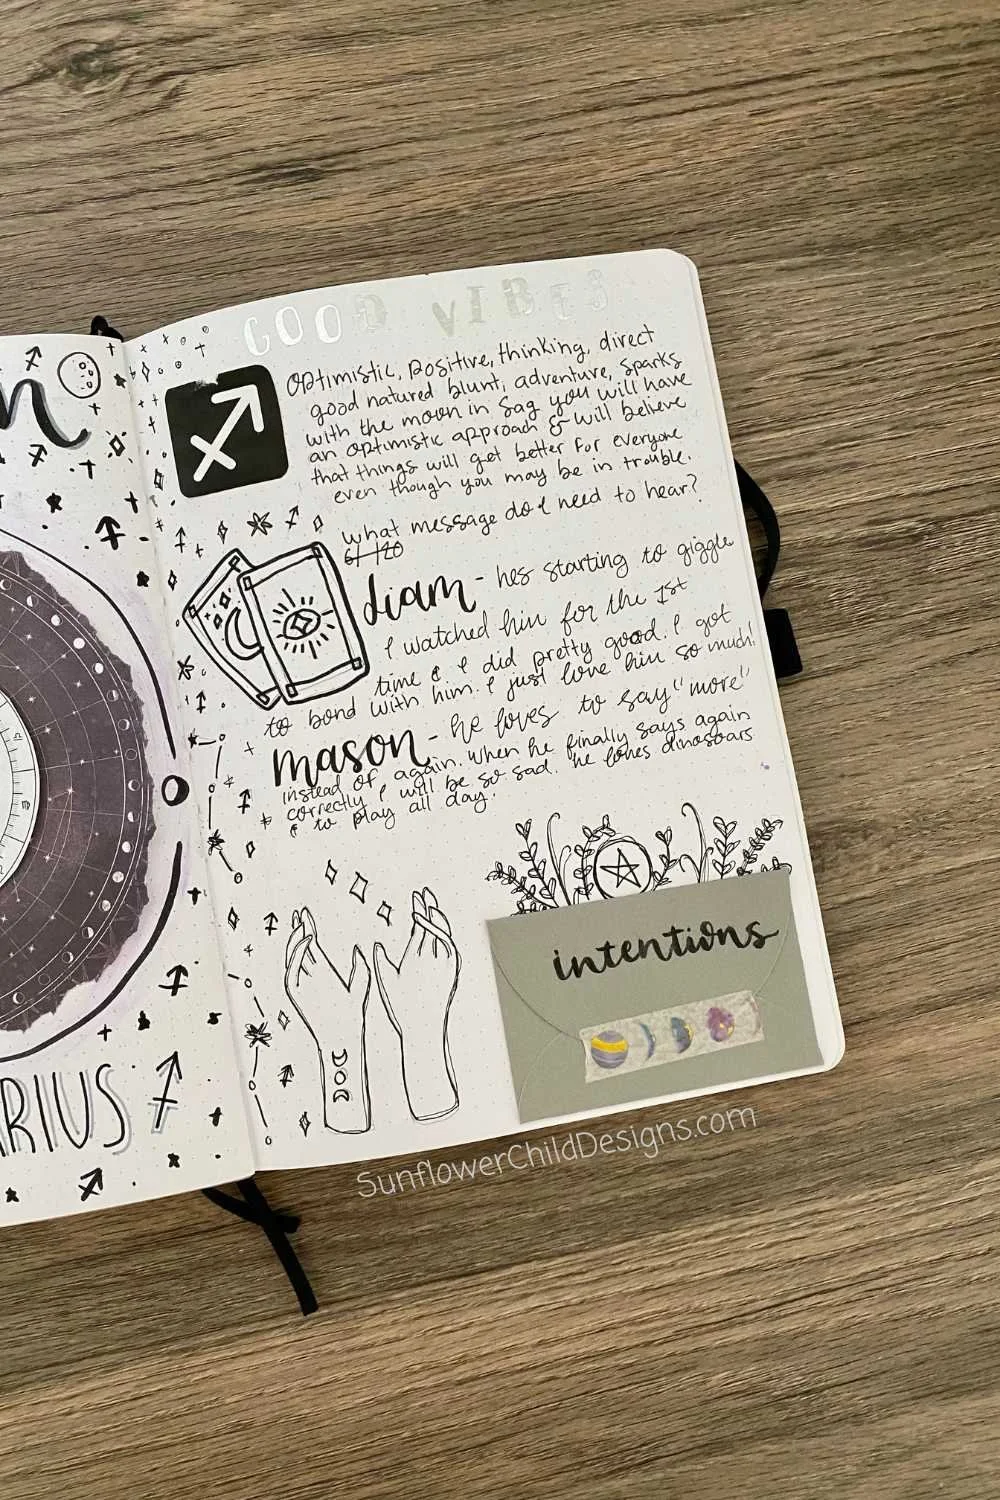 n
RIUS
GOOD VIBES
Optimistic, positive, thinking, direct
good natured blunt, adventure, sparks
with the moon in Sag you will have
an optimistic approach & will believe
that things will get better for everyone
even though you may be in trouble.
what message do I need to hear?
6/ /20
Liam - hes starting to giggle
I watched him for the 1st
time & I did pretty good. I got
to bond with him. I just love him so much!
Mason - he loves to say "more"
instead of again. When he finally says again
correctly I will be so sad. he loves dinosoars
& to play all day.
intentions
SunflowerChildDesigns.com